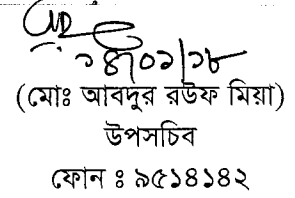 ১৪/০১/১৮
(মোঃ আবদুর রউফ মিয়া)
উপসচিব
ফোন ঃ ৯৫১৪১৪২